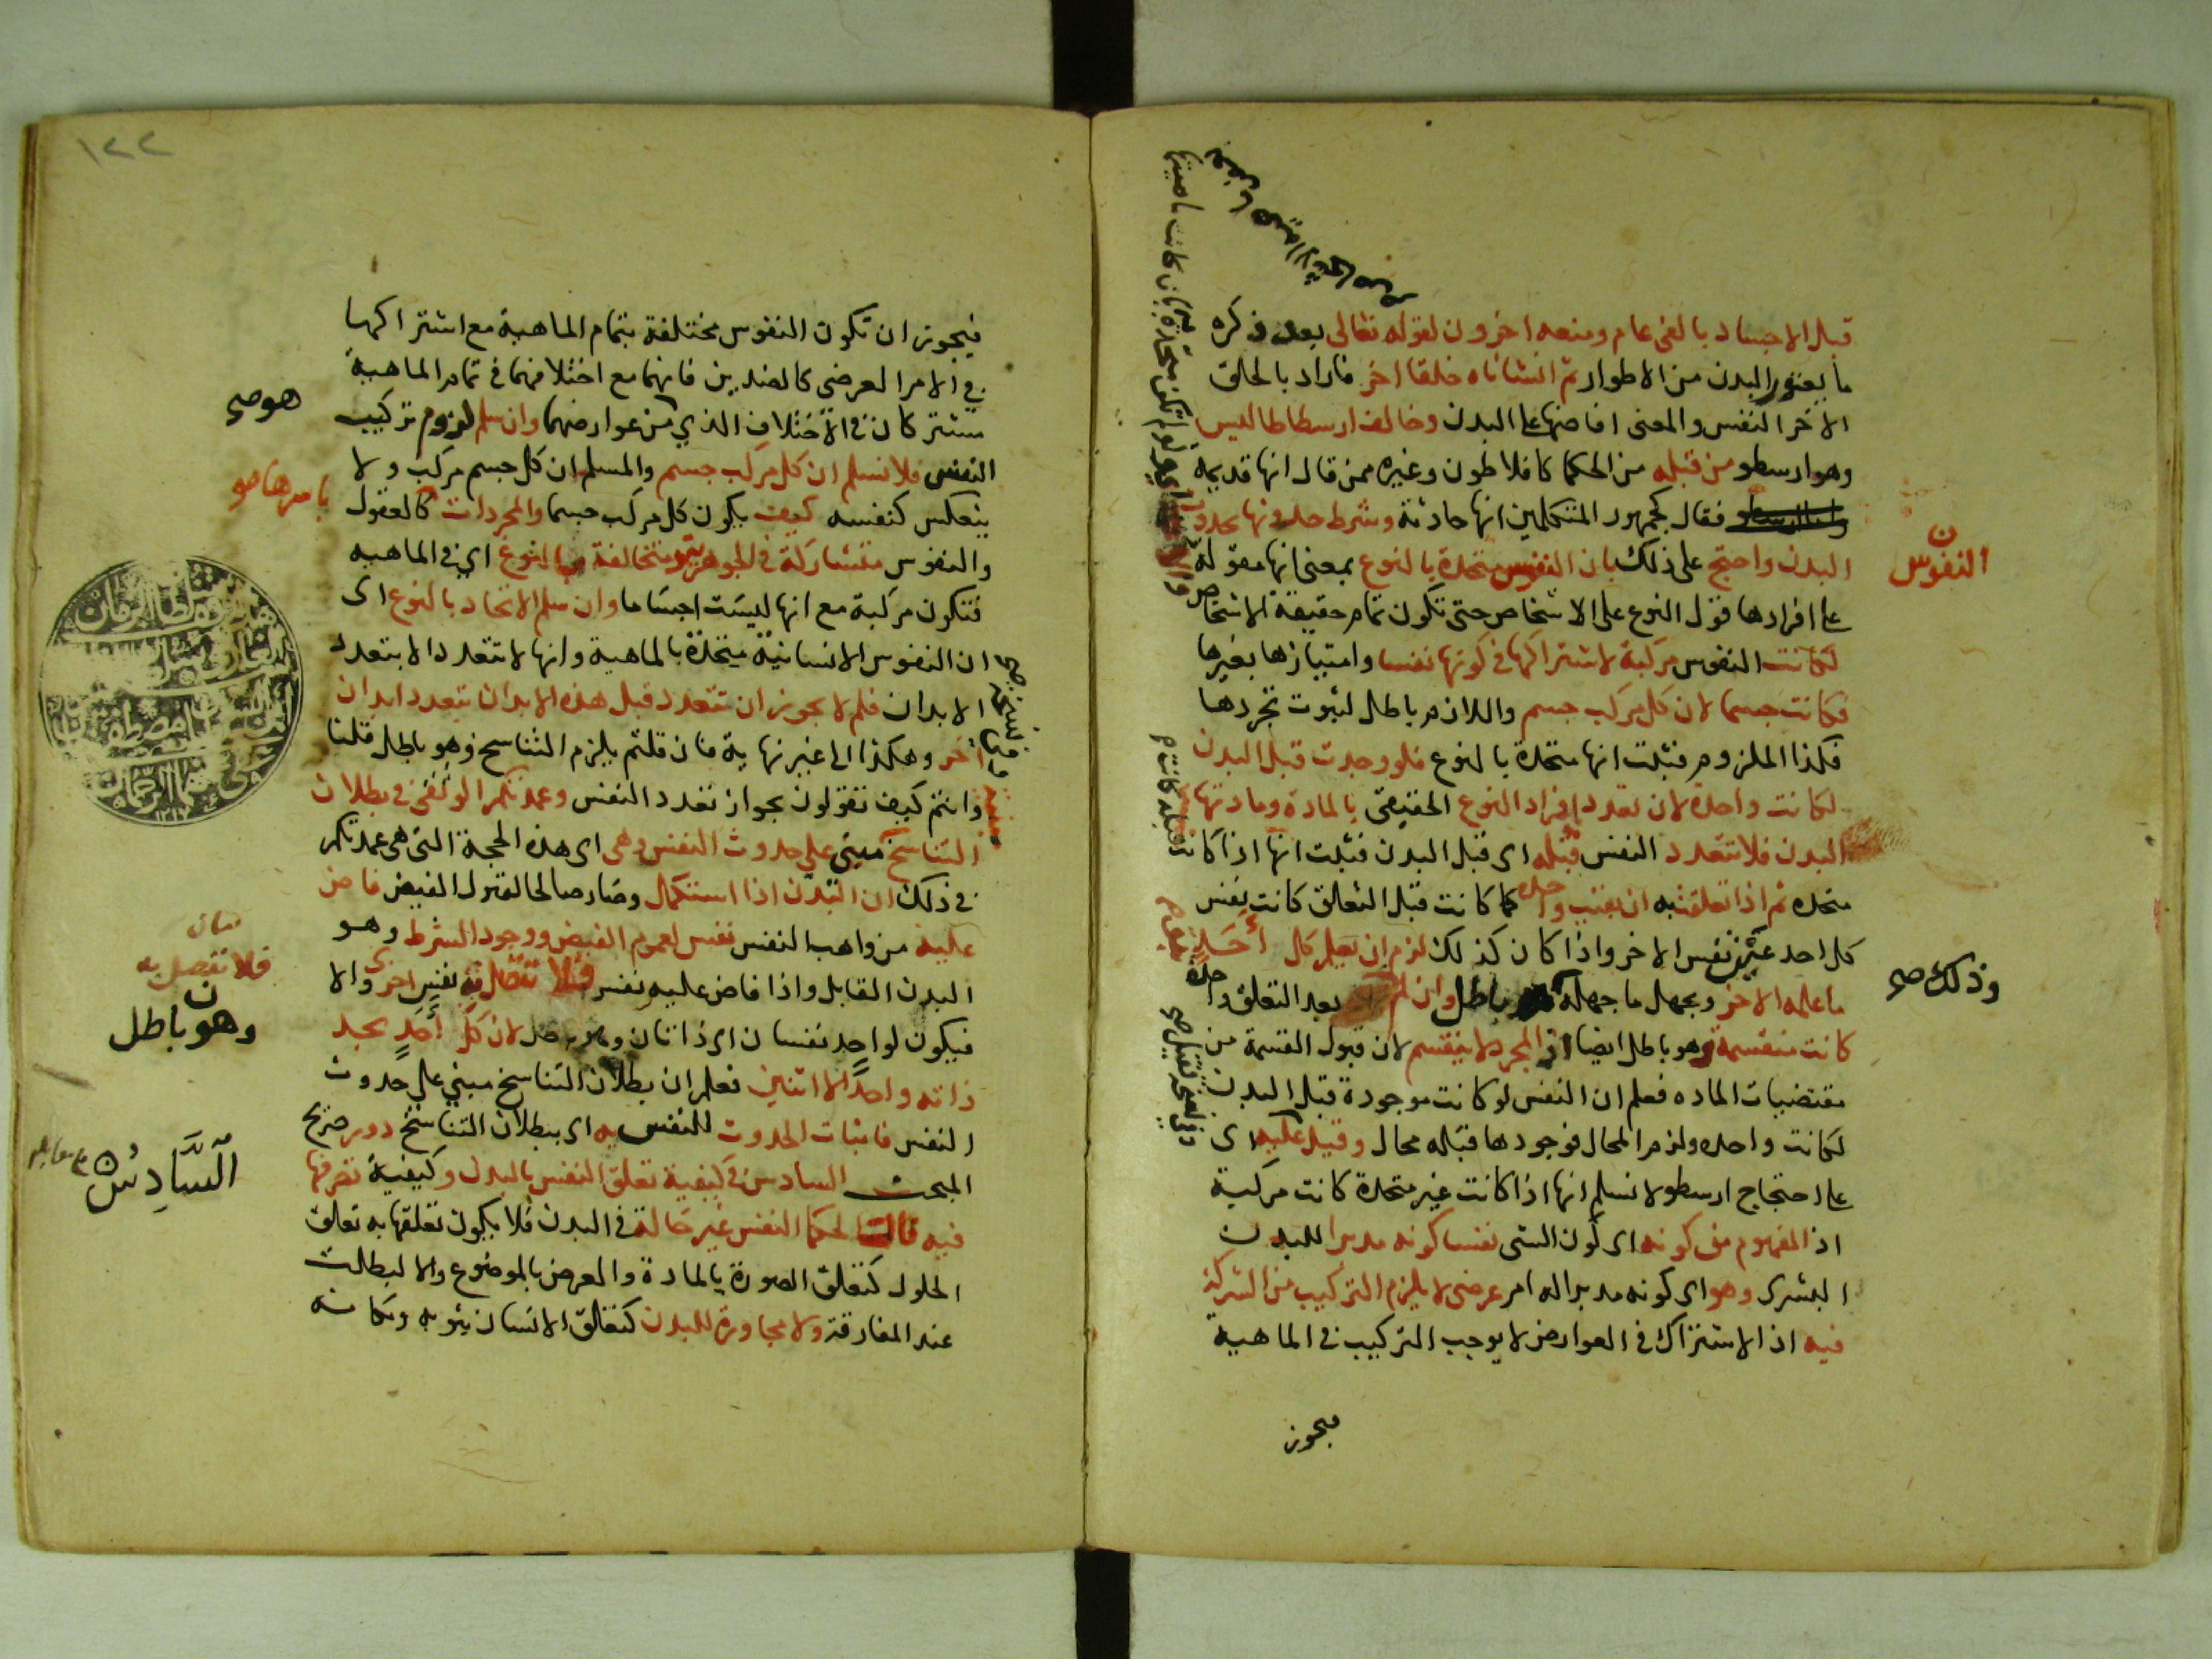 قبل الاجساد بالفى عام ومنعه اخرون لقوله تعالى بعد ذكره
ما يعتور البدن من الاطوار ثم انشأناه خلقا اخر فاراد بالخلق
الاخر النفس والمعنى افاضها على البدن وخالف ارسطاطاليس
وهو ارسطو من قبله من الحكما كافلاطون وغيره ممن قال انها قديمة
فقال كجمهور المتكلمين انها حادثة وشرط حدوثها بحدوث
البدن واحتج على ذلك بان النفوس متحدة بالنوع بمعنى انها مقولة
على افرادها قول النوع على الاشخاص حتى تكون تمام حقيقة الاشخاص
لكانت النفوس مركبة لاشتراكها فى كونها نفسا وامتيازها بغيرها
فكانت جسما لان كل مركب جسم واللازم باطل لثبوت تجردها
فكذا الملزوم فثبت انها متحدة بالنوع فلو وجدت قبل البدن
لكانت واحدة لان تعدد افراد النوع الحقيقى بالمادة ومادتها
البدن فلا تتعدد النفس قبله اى قبل البدن فثبت انها اذا كانت
متحده ثم اذا تعلقت به ان بقيت واحده كما كانت قبل التعلق كانت نفس
كل احد عين نفس الاخر واذا كان كذلك لزم ان يعلم كل أحد
ما علمه الاخر ويجهل ما جهله باطل وان لم بعد التعلق واحدة
كانت منقسمة وهو باطل ايضا اذ المجرد لا ينقسم لان قبول القسمة من
مقتضيات الماده فعلم ان النفس لو كانت موجودة قبل البدن
لكانت واحده ولزم المحال فوجودها قبله محال وقيل عليه اى
على احتجاج ارسطو لا نسلم انها اذا كانت غير متحدة كانت مركبة
اذ المفهوم من كونه اى كون الشى نفسا كونه مدبرا للبدن
البشرى وهو اى كونه مدبرا له امر عرضى لا يلزم التركيب من الشركة
فيه اذ الاشتراك فى العوارض لا يوجب التركيب فى الماهية
فيجوز
النفوس
ن
وذلك صح
١٢٢
فيجوز ان تكون النفوس مختلفة بتمام الماهية مع اشتراكها
فى الامر العرضى كالضدين فانهما مع اختلافهما فى تمام الماهية
مشتركان فى الاختلاف الذي من عوارضهما وان سلم لزوم تركيب
النفس فلا نسلم ان كل مركب جسم والمسلم ان كل جسم مركب ولا
ينعكس كنفسه كيف يكون كل مركب جسما والمجردات كالعقول
والنفوس متشاركة فى الجوهرية متخالفة بالنوع اى فى الماهيه
فتكون مركبة مع انها ليست اجساما وان سلم الاتحاد بالنوع اى
ان النفوس الانسانية متحدة بالماهية وانها لا تتعدد الا بتعدد
الابدان فلم لا يجوز ان تتعدد قبل هذه الابدان بتعدد ابدان
أخر وهكذا الى غير نهاية فان قلتم يلزم التناسخ وهو باطل قلنا
وانتم كيف تقولون بجواز تعدد النفس وعمدتكم الوثقى فى بطلان
التناسخ مبنى على حدوث النفس وهى اى هذه الحجة التى هى عمدتكم
فى ذلك ان البدن اذا استكمل وصار صالحا لقبول الفيض فاض
عليه من واهب النفس نفس لعموم الفيض ووجود الشرط وهو
البدن القابل واذا فاض عليه نفس فلا تتصل به نفس اخرى والا
فيكون لواحد نفسان اى ذاتان وهو باطل لان كل أحد يجد
ذاته واحدا لا اثنين فعلم ان بطلان التناسخ مبني على حدوث
النفس فاثبات الحدوث للنفس به اى ببطلان التناسخ دور صريح
المبحث السادس فى كيفية تعلق النفس بالبدن وكيفية تصرفها
فيه قالت الحكما النفس غير حالة فى البدن فلا يكون تعلقها به تعلق
الحلول كتعلق الصورة بالمادة والعرض بالموضوع والا لبطلت
عند المفارقة ولا مجاورة للبدن كتعلق الانسان بثوبه ومكانه
هو صح
فلا تتصل به
ن
وهو باطل
ٱلسَّادِسُ